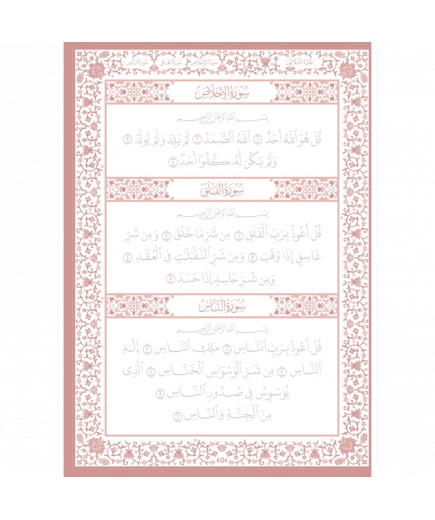 سورة الناس سورة الفلق سورة الإخلاص
سُورَةُ الإِخْلَاصِ
بِسْمِ اللَّهِ الرَّحْمَٰنِ الرَّحِيمِ
قُلْ هُوَ ٱللَّهُ أَحَدٌ ١ ٱللَّهُ ٱلصَّمَدُ ٢ لَمْ يَلِدْ وَلَمْ يُولَدْ ٣
وَلَمْ يَكُن لَّهُۥ كُفُوًا أَحَدٌۢ ٤
سُورَةُ الفَلَقِ
بِسْمِ اللَّهِ الرَّحْمَٰنِ الرَّحِيمِ
قُلْ أَعُوذُ بِرَبِّ ٱلْفَلَقِ ١ مِن شَرِّ مَا خَلَقَ ٢ وَمِن شَرِّ
غَاسِقٍ إِذَا وَقَبَ ٣ وَمِن شَرِّ ٱلنَّفَّٰثَٰتِ فِى ٱلْعُقَدِ ٤
وَمِن شَرِّ حَاسِدٍ إِذَا حَسَدَ ٥
سُورَةُ النَّاسِ
بِسْمِ اللَّهِ الرَّحْمَٰنِ الرَّحِيمِ
قُلْ أَعُوذُ بِرَبِّ ٱلنَّاسِ ١ مَلِكِ ٱلنَّاسِ ٢ إِلَٰهِ
ٱلنَّاسِ ٣ مِن شَرِّ ٱلْوَسْوَاسِ ٱلْخَنَّاسِ ٤ ٱلَّذِى
يُوَسْوِسُ فِى صُدُورِ ٱلنَّاسِ ٥
مِنَ ٱلْجِنَّةِ وَٱلنَّاسِ ٦